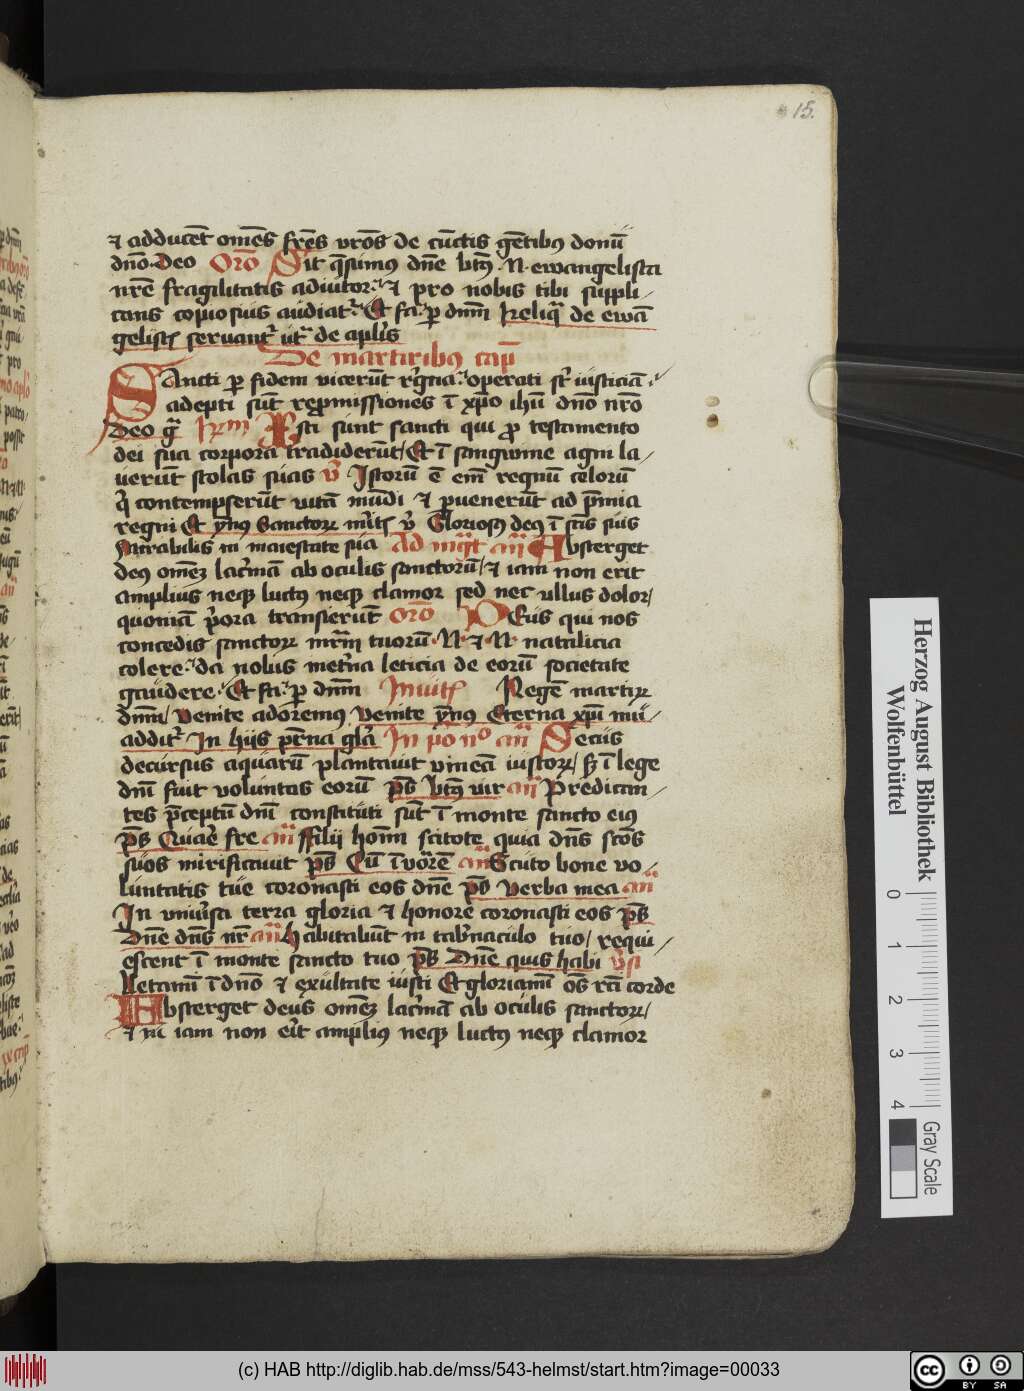 15.
⁊ adducēt om̄es fr̄es vr̄os de cūctis gētibꝰ donū
dn̄o deo Or̄o Sit q̄sumus dn̄e btꝰ N ewangelista
nr̄e fragilitatis adiutor ⁊ pro nobis tibi suppli/
cans copiosius audiatr̄ Et fa ꝑ dn̄m Reliq̄ de ewā
gelistꝭ seruantr̄ utr̄ de apl̄is
De martiribꝰ cap̄
Sancti ꝑ fidem vicerūt rͤgna operati sͭ iusticiā
adepti sūt repromissiones ī xp̄o ih̄u dn̄o nr̄o
deo gr̄a Isti sunt sancti qui ꝓ testamento
dei sua corpora tradiderūt/ Et ī sanguine agni la/
uerūt stolas suas v̄ Istorū ē em̄ regnū celorū
q̄ contempserūt vitā mūdi ⁊ ꝑuenerūt ad p̄mia
regni Et ẏmꝰ Sanctoꝝ mr̄itꝭ v̄ Gloriosꝰ deꝰ ī sc̄is suis
Mirabilis in maiestate sua Ad mgt an̄ Absterget
deꝰ omēȝ lac̄mā ab oculis sanctorū/ ⁊ iam non erit
amplius neqꝫ luctꝰ neqꝫ clamor sed nec ullus dolor/
quoniā p̄ora transierūt Or̄o Deus qui nos
concedis sanctoꝝ mr̄m tuorū N ⁊ N natalicia
colere da nobis in et̄na leticia de eorū societate
gaudere Et fa ꝑ dn̄m Inuitꝭ Regē martiꝝ
dn̄m/ Venite adoremꝰ Venite ẏmꝰ Eterna xp̄i mū/
additr̄ In hijs pr̄na gl̄a In pͦo noͦ an̄ Secus
decursus aquarū plantauit vineā iustoꝝ/ sꝫ ī lege
dn̄i fuit voluntas eorū p̄s btꝰ vir an̄ Predican/
tes p̄ceptū dn̄i constituti sūt ī monte sancto eiꝰ
p̄s Quare fre an̄ ffilij hom̄ scitote quia dn̄s sc̄os
suos mirificauit p̄s Cū īvorē an̄ Scuto bone vo/
luntatis tue coronasti eos dn̄e p̄s Verba mea an̄
In vniūsa terra gloria ⁊ honore coronasti eos p̄s
Dn̄e dn̄s nr̄ an̄ habitabūt in tab̄naculo tuo/ requi/
escent ī monte sancto tuo p̄s Dn̄e quis habi v̄s
Letamī ī dn̄o ⁊ exultate iusti Et gloriamī os̄ rc̄i corde
Absterget deus omēȝ lac̄mā ab oculis sanctoꝝ/
⁊ iam non er̄it ampliꝰ neqꝫ luctꝰ neqꝫ clamor
Herzog August Bibliothek
Wolfenbüttel
0
1
2
3
4
Gray Scale
(c) HAB http://diglib.hab.de/mss/543-helmst/start.htm?image=00033
cc BY SA